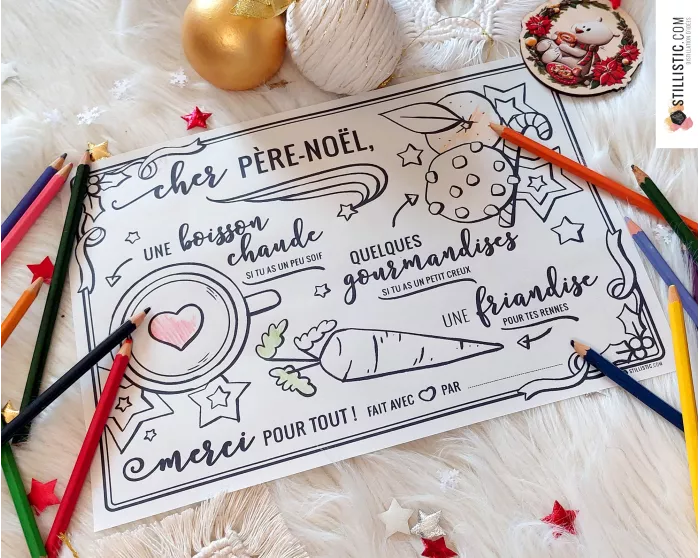 cher PÈRE-NOËL,
UNE boisson
chaude
SI TU AS UN PEU SOIF
QUELQUES
gourmandises
SI TU AS UN PETIT CREUX
UNE friandise
POUR TES RENNES
merci POUR TOUT ! FAIT AVEC PAR
STILLISTIC.COM
STILLISTIC.COM